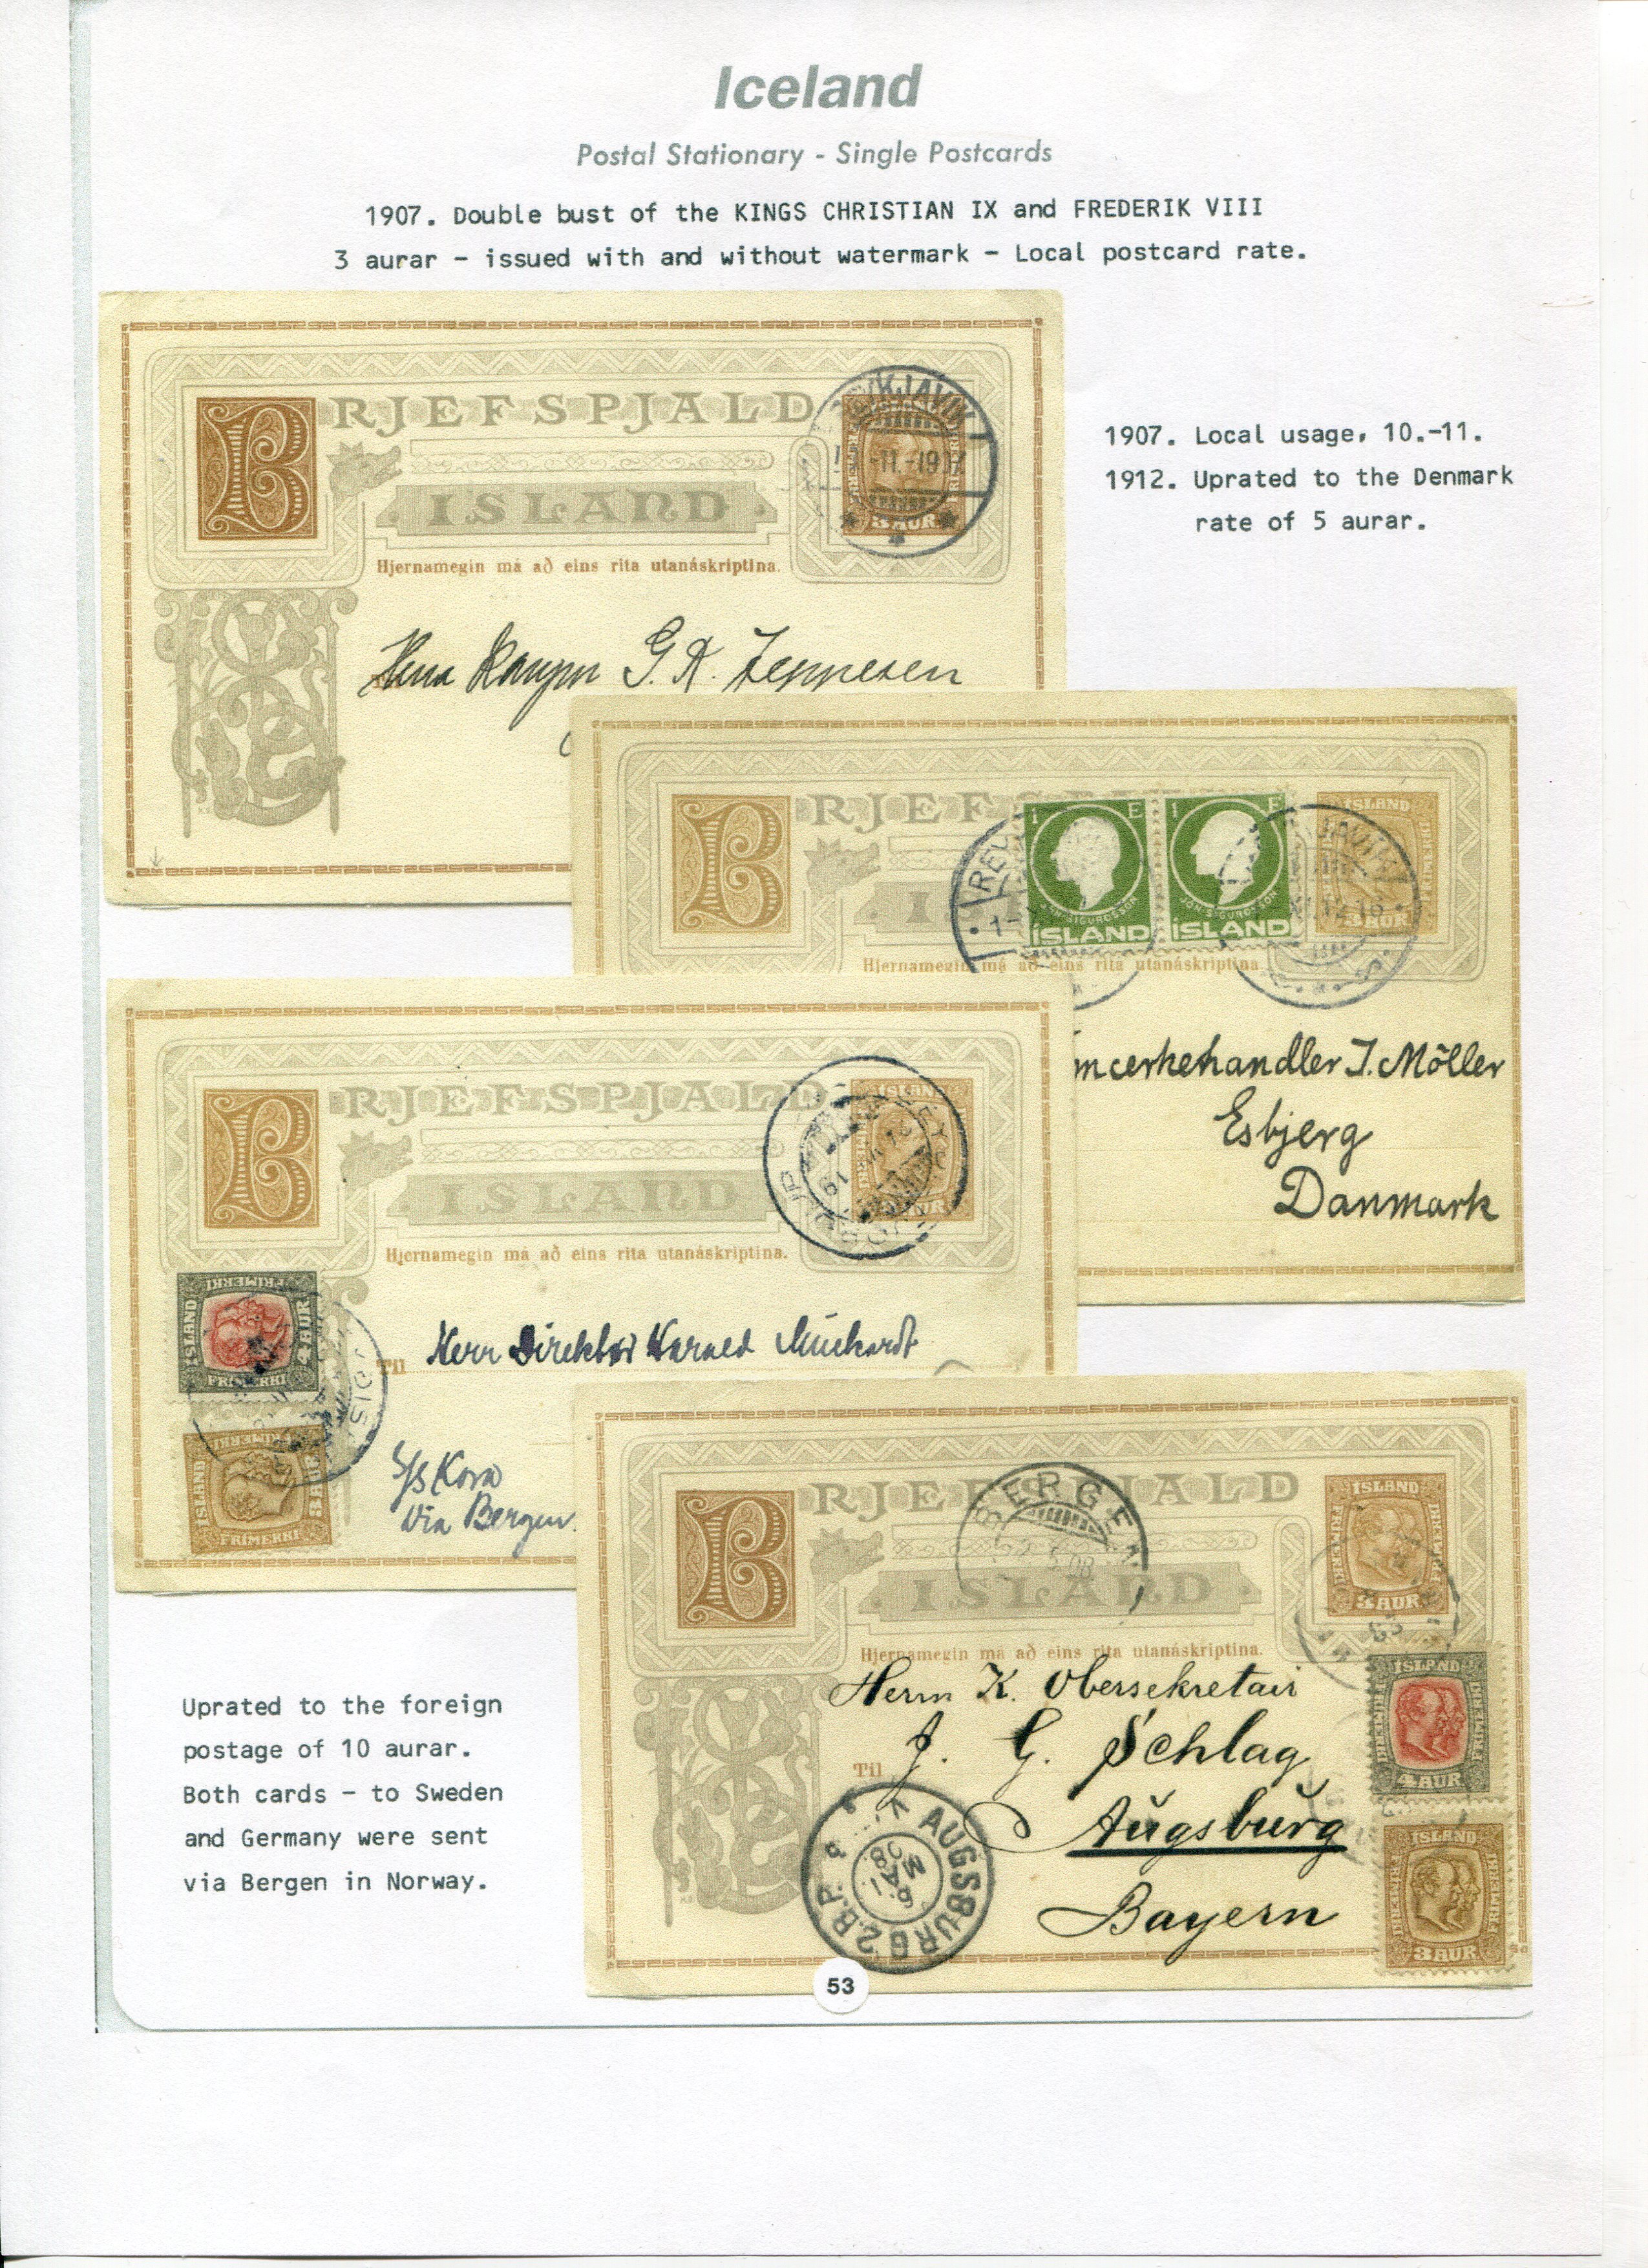 Iceland
Postal Stationary - Single Postcards
1907. Double bust of the KINGS CHRISTIAN IX and FREDERIK VIII
3 aurar - issued with and without watermark - Local postcard rate.
BRJEFSPJALD
ISLAND
3 AUR
Hjernamegin má að eins rita utanáskriptina.
G.
1907. Local usage, 10.-11.
1912. Uprated to the Denmark
rate of 5 aurar.
BRJEFS
ÍSLAND
1 E 1 E
JÓN SIGURÐSSON JÓN SIGURÐSSON
ÍSLAND ÍSLAND
3 AUR
Hjernamegin má að eins rita utanáskriptina.
J. Möller
Esbjerg
Danmark
BRJEFSPJALD
ÍSLAND
ISLAND
Hjernamegin má að eins rita utanáskriptina.
FRÍMERKI
ÍSLAND
4 AUR
FRÍMERKI
Til
Herr Direktör Harald
FRÍMERKI
ÍSLAND
3 AUR
FRÍMERKI
S/S Kora
Via Bergen
BRJEFSPJALD
BERGEN
08
ÍSLAND
FRÍMERKI
3 AUR
ISLAND
Hjernamegin má að eins rita utanáskriptina.
Herrn K. Obersekretair
J. G. Schlag
Til
Augsburg
Bayern
ÍSLAND
FRÍMERKI
4 AUR
ÍSLAND
FRÍMERKI
3 AUR
AUGSBURG 2.B.P.
6.
MAI
08
Uprated to the foreign
postage of 10 aurar.
Both cards - to Sweden
and Germany were sent
via Bergen in Norway.
53